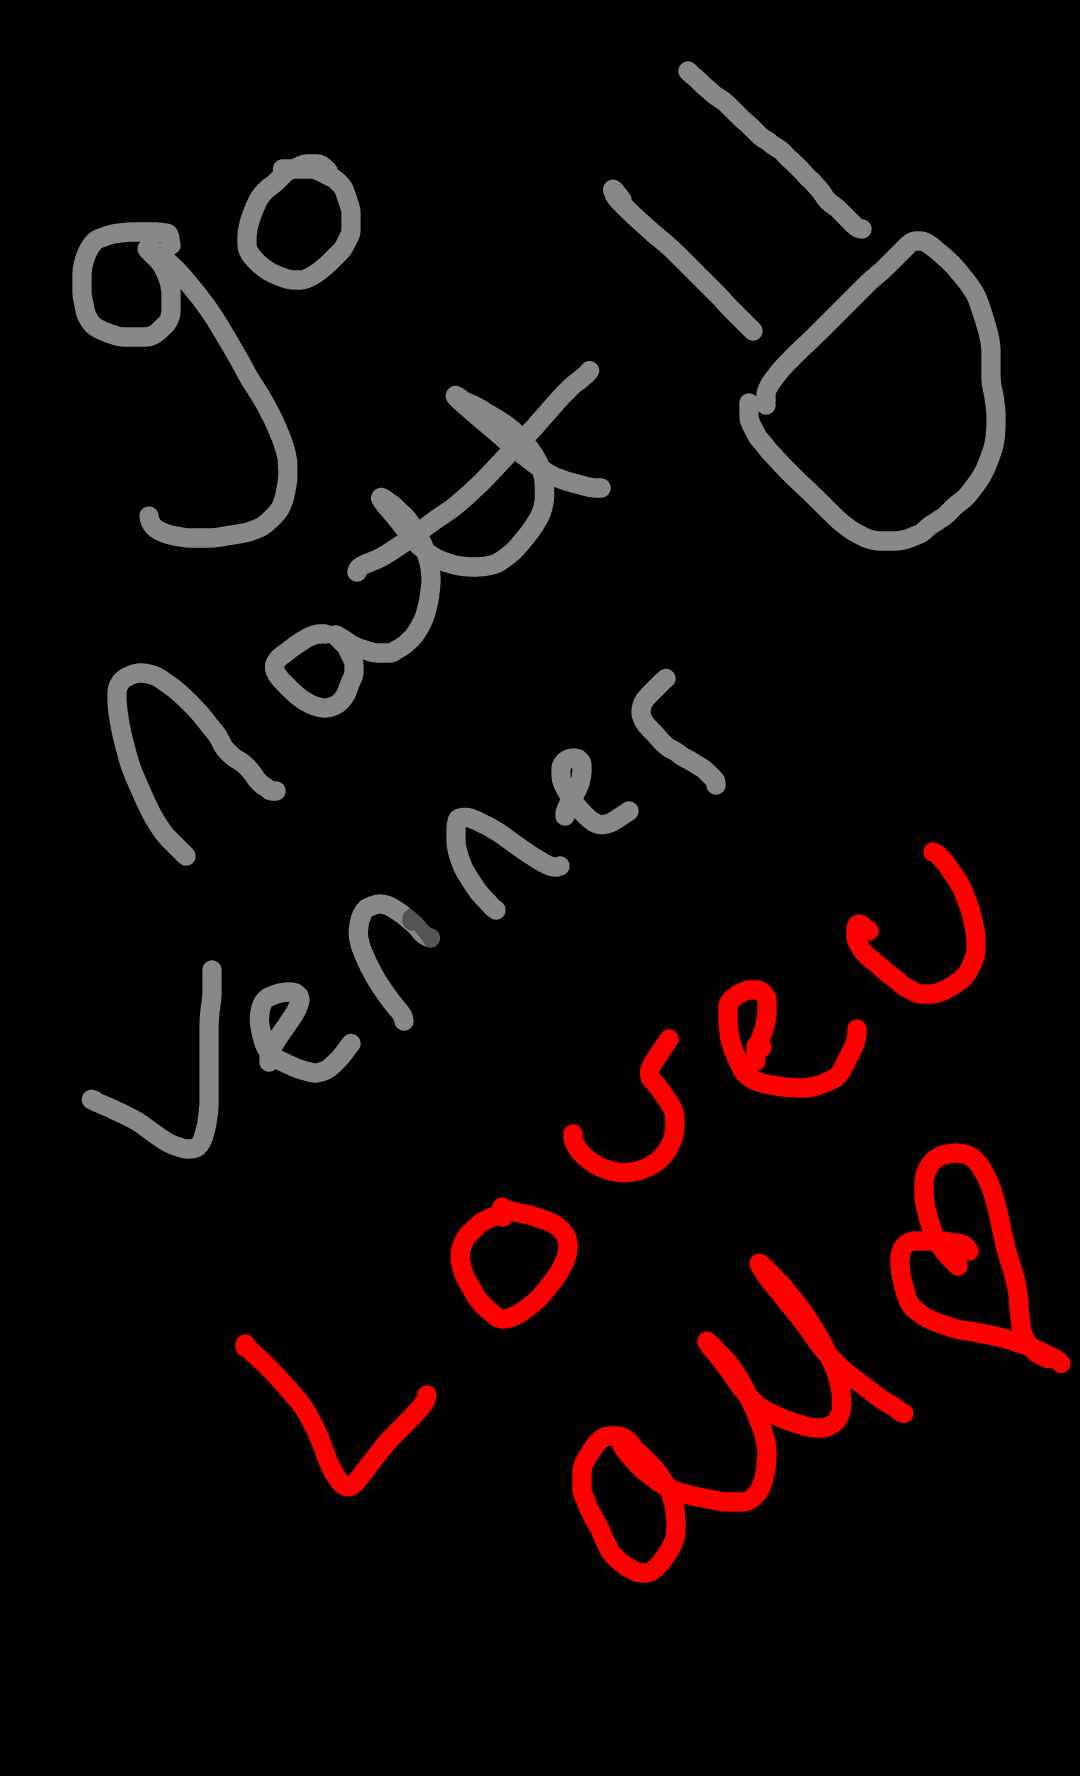 go =D
natt
venner
Love u
all ♡